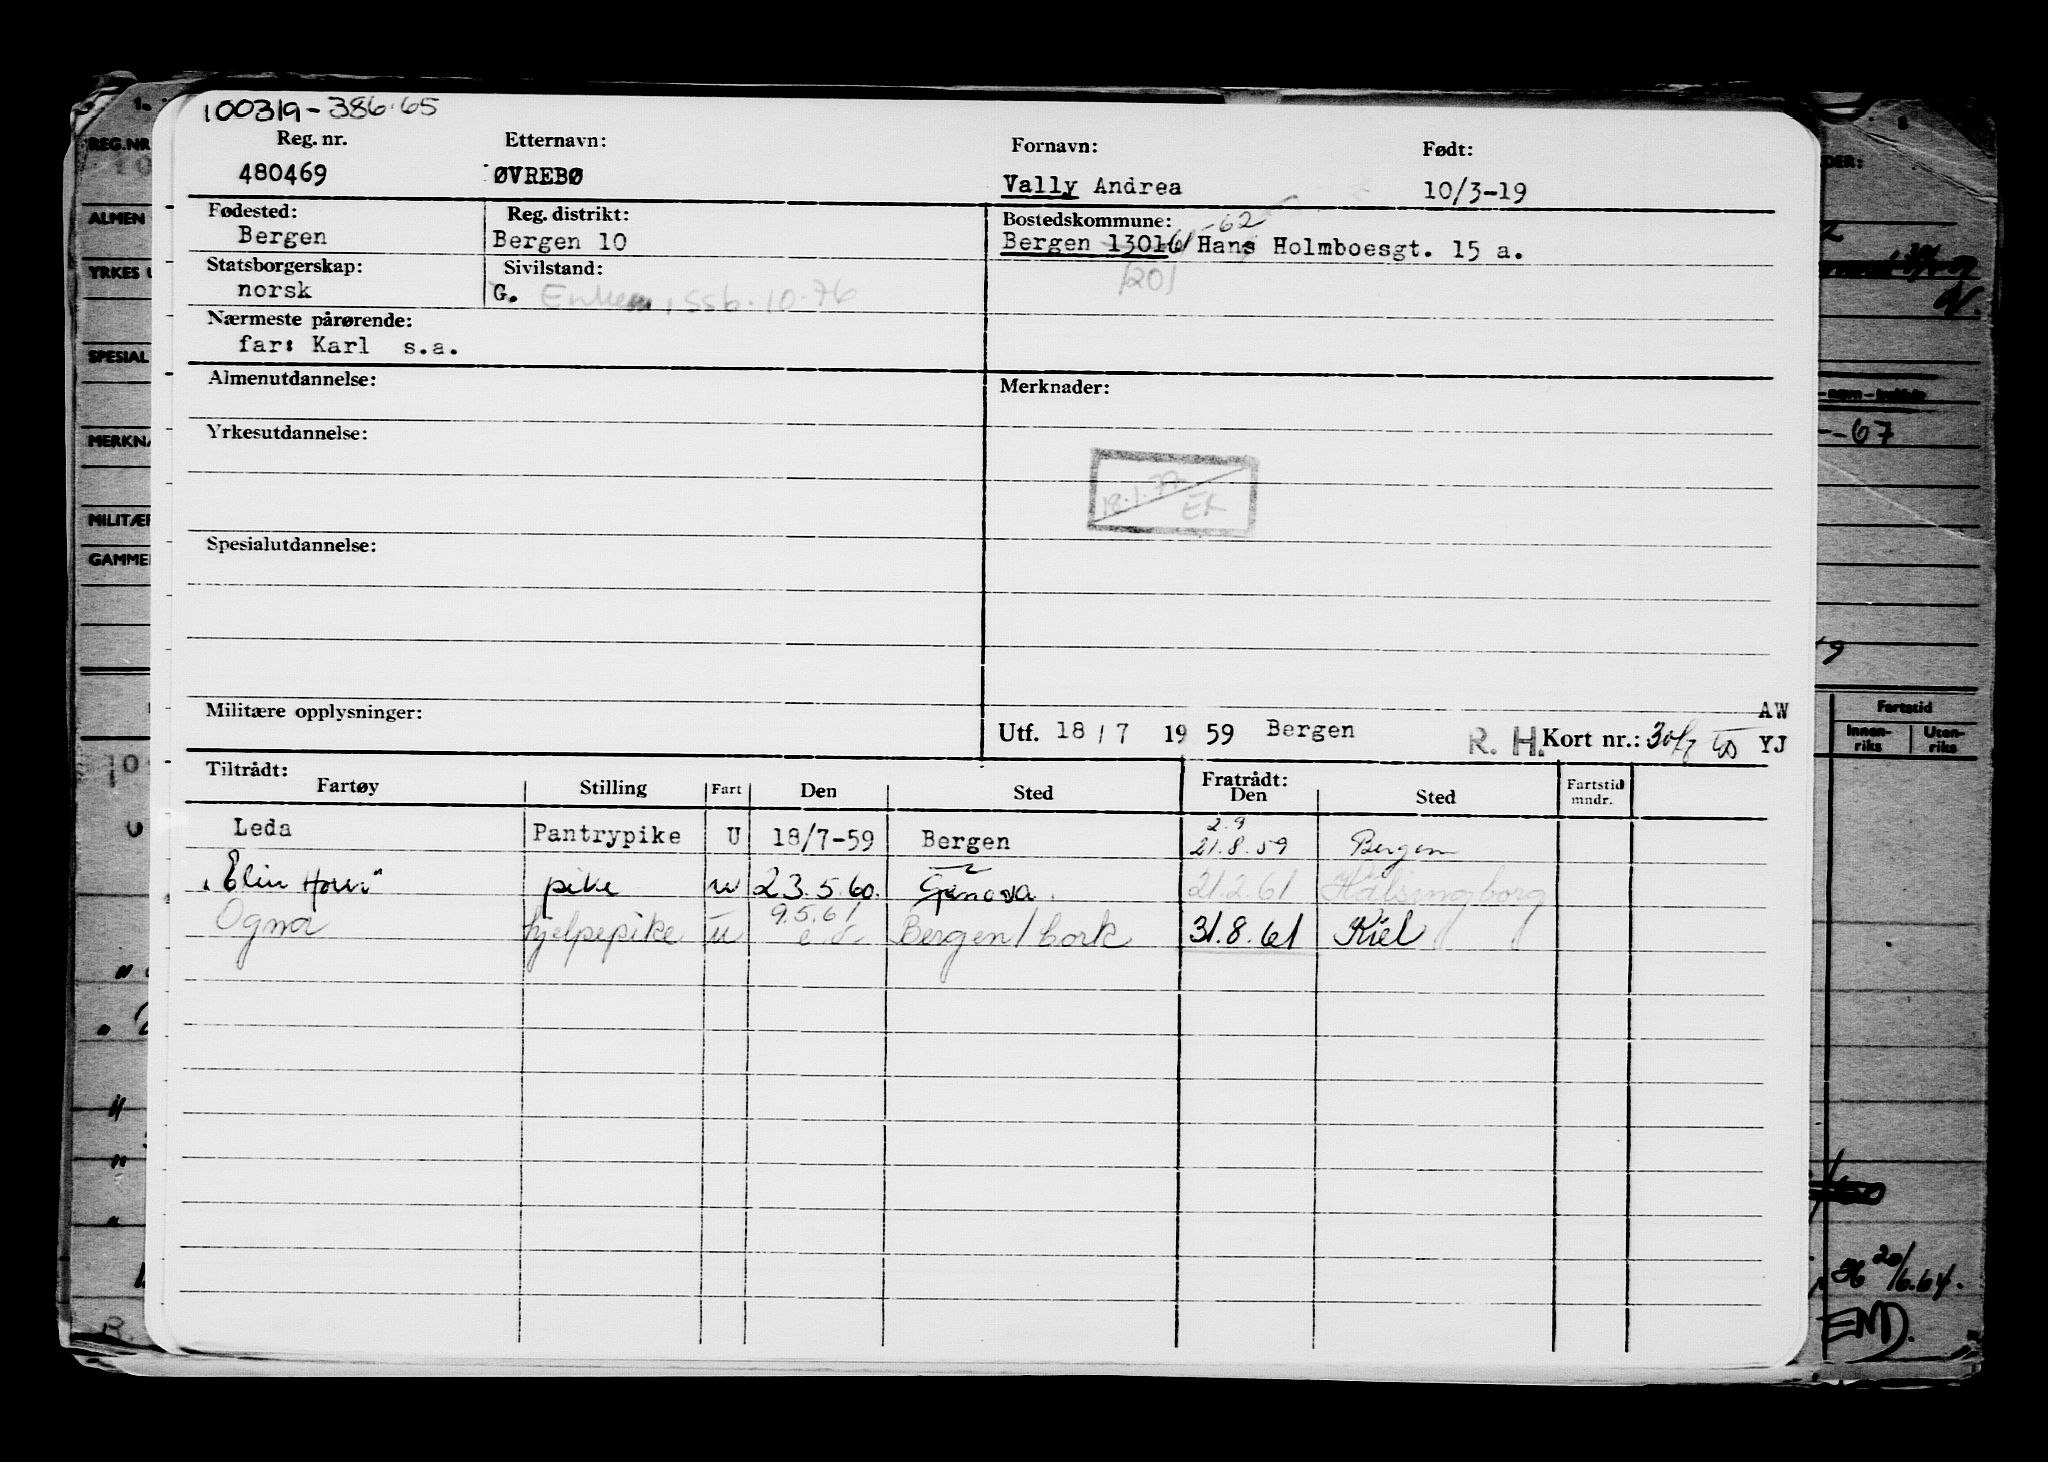 100319-386.65
Reg. nr. Etternavn: Fornavn: Født:
480469 ØVREBØ Vally Andrea 10/3-19
Fødested: Reg. distrikt: Bostedskommune: -62
Bergen Bergen 10 Bergen 1301 61 Hans Holmboesgt. 15 a.
Statsborgerskap: Sivilstand: 1201
norsk G. SSB.10-76
Nærmeste pårørende:
far: Karl s.a.
Almenutdannelse: Merknader:
Yrkesutdannelse:
18.1.77
ER
Spesialutdannelse:
Militære opplysninger:
AW
Utf. 18/7 1959 Bergen R. H. Kort nr.: 30/7 YJ
Tiltrådt: Fratrådt:
Fartøy Stilling Fart Den Sted Den Sted Fartstid mndr.
2.9
Leda Pantrypike U 18/7-59 Bergen 21.8.59 Bergen
"Elin Horn" pike u 23.5.60. Genova 21.2.61 Hälsingborg
9.5.61
Ogna hjelpepike u Bergen/bork 31.8.61 Kiel
REG.NR
ALMEN
YRKES U
SPESIAL
MERKNA
MILITÆR
GAMMEL
DER:
-67
Fartstid
Innen-riks Uten-riks
36 20/6.64.
END.